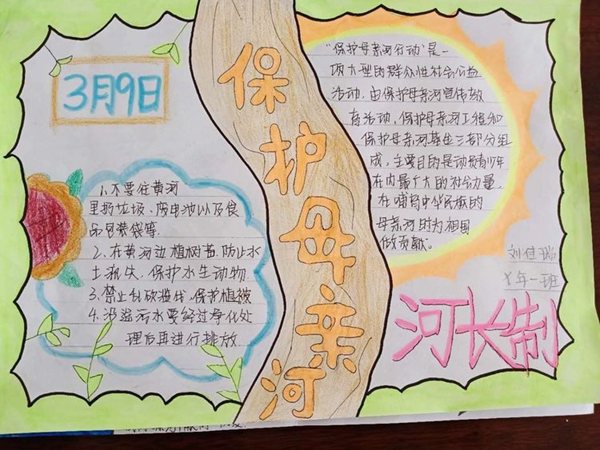 3月9日
保护母亲河
1.不要往黄河
里扔垃圾、废电池以及食
品包装袋等
2、在黄河边植树苗,防止水
土流失,保护水生动物
3.禁止乱砍滥伐,保护植被
4.沿溢污水要经过净化处
理后再进行排放
"保护母亲河行动"是一
项大型的群众性社会公益
活动,由保护母亲河宣传教
育活动,保护母亲河工程和
保护母亲河基金三部分组
成,主要目的是动员青少年
在内最广大的社会力量,
在哺育中华民族的
母亲河时为祖国
做贡献.
刘佳
年一班
河长制